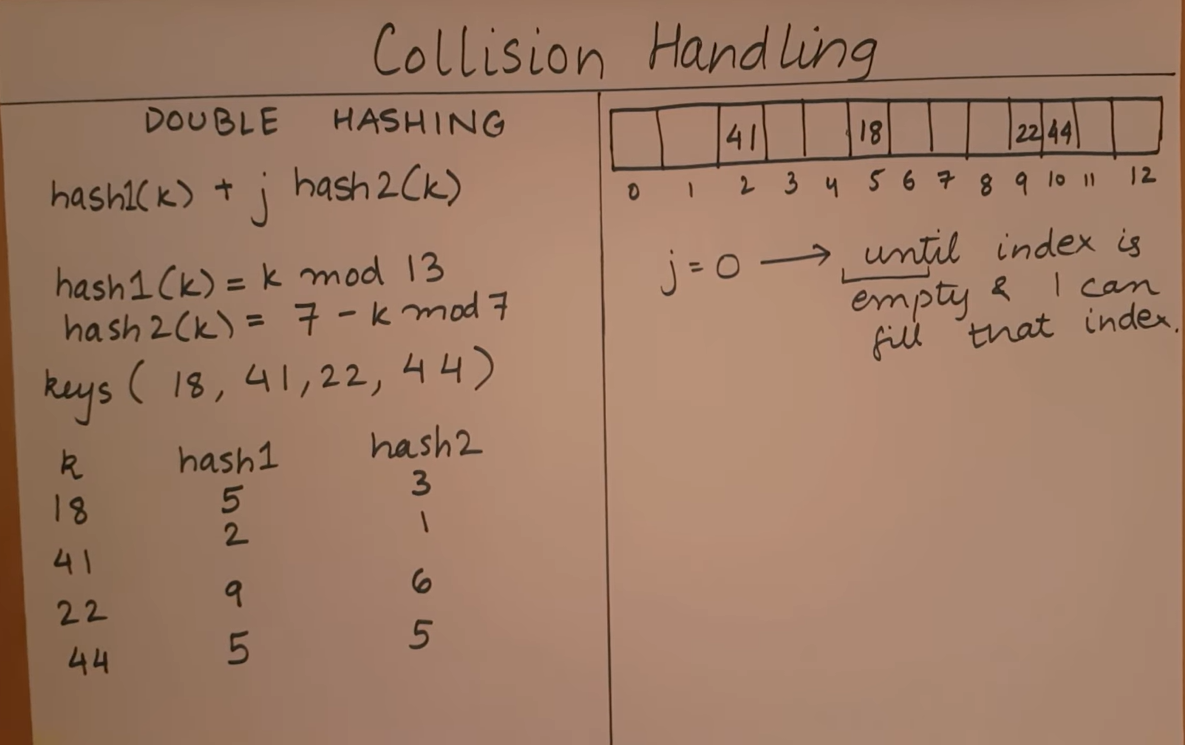 Collision Handling
DOUBLE HASHING
hash1(k) + j hash2(k)
hash1(k) = k mod 13
hash2(k) = 7 - k mod 7
keys ( 18, 41, 22, 44)
k hash1 hash2
18 5 3
41 2 1
22 9 6
44 5 5
41 18 22 44
0 1 2 3 4 5 6 7 8 9 10 11 12
j = 0 → until index is
empty & I can
fill that index.